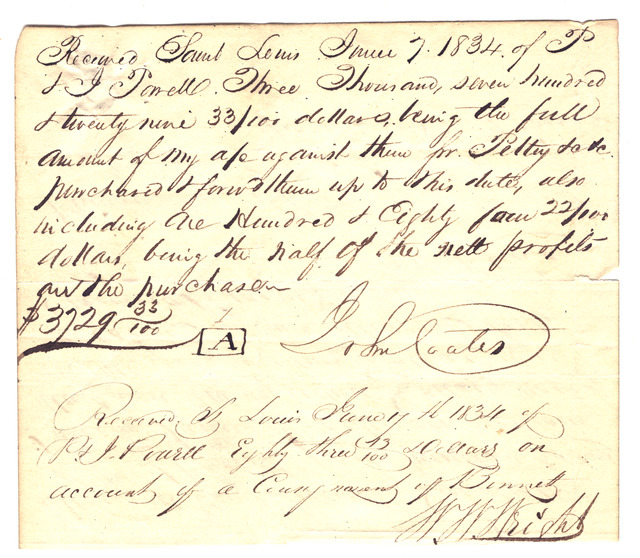 Received Saint Louis June 7. 1834. of P
& J Powell. Three Thousand, seven hundred
& twenty nine 33/100 dollars, being the full
amount of my a/c against them for Peltry &c &c
purchased & forwd them up to this date, also
including One Hundred & Eighty four 22/100
dollars, being the half of the nett profits
on the purchases
$3729 33/100
A
John Coates
Received St Louis June 1834 of
P & J. Powell Eighty three 43/100 Dollars on
account of a Consignment of
W W Wright